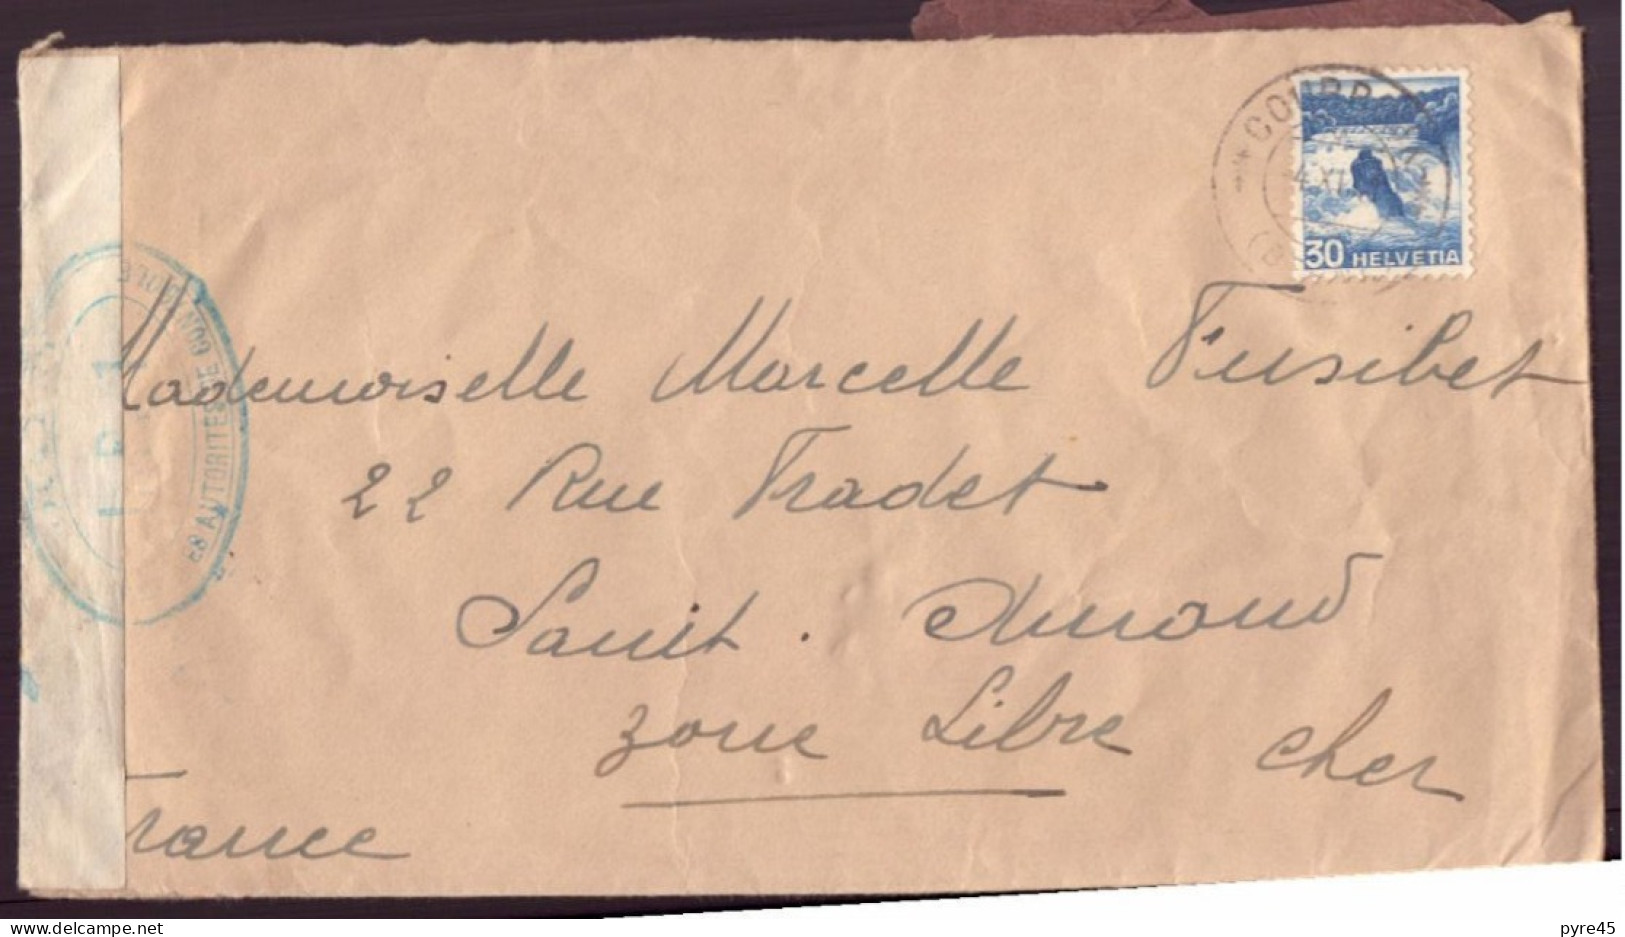 4 XI
30 HELVETIA
AUTORITES DE CONTROLE
Mademoiselle Marcelle Fusibet
22 Rue Fradet
Sanit. Amand
zone Libre Cher
France
delcampe.net
pyre45